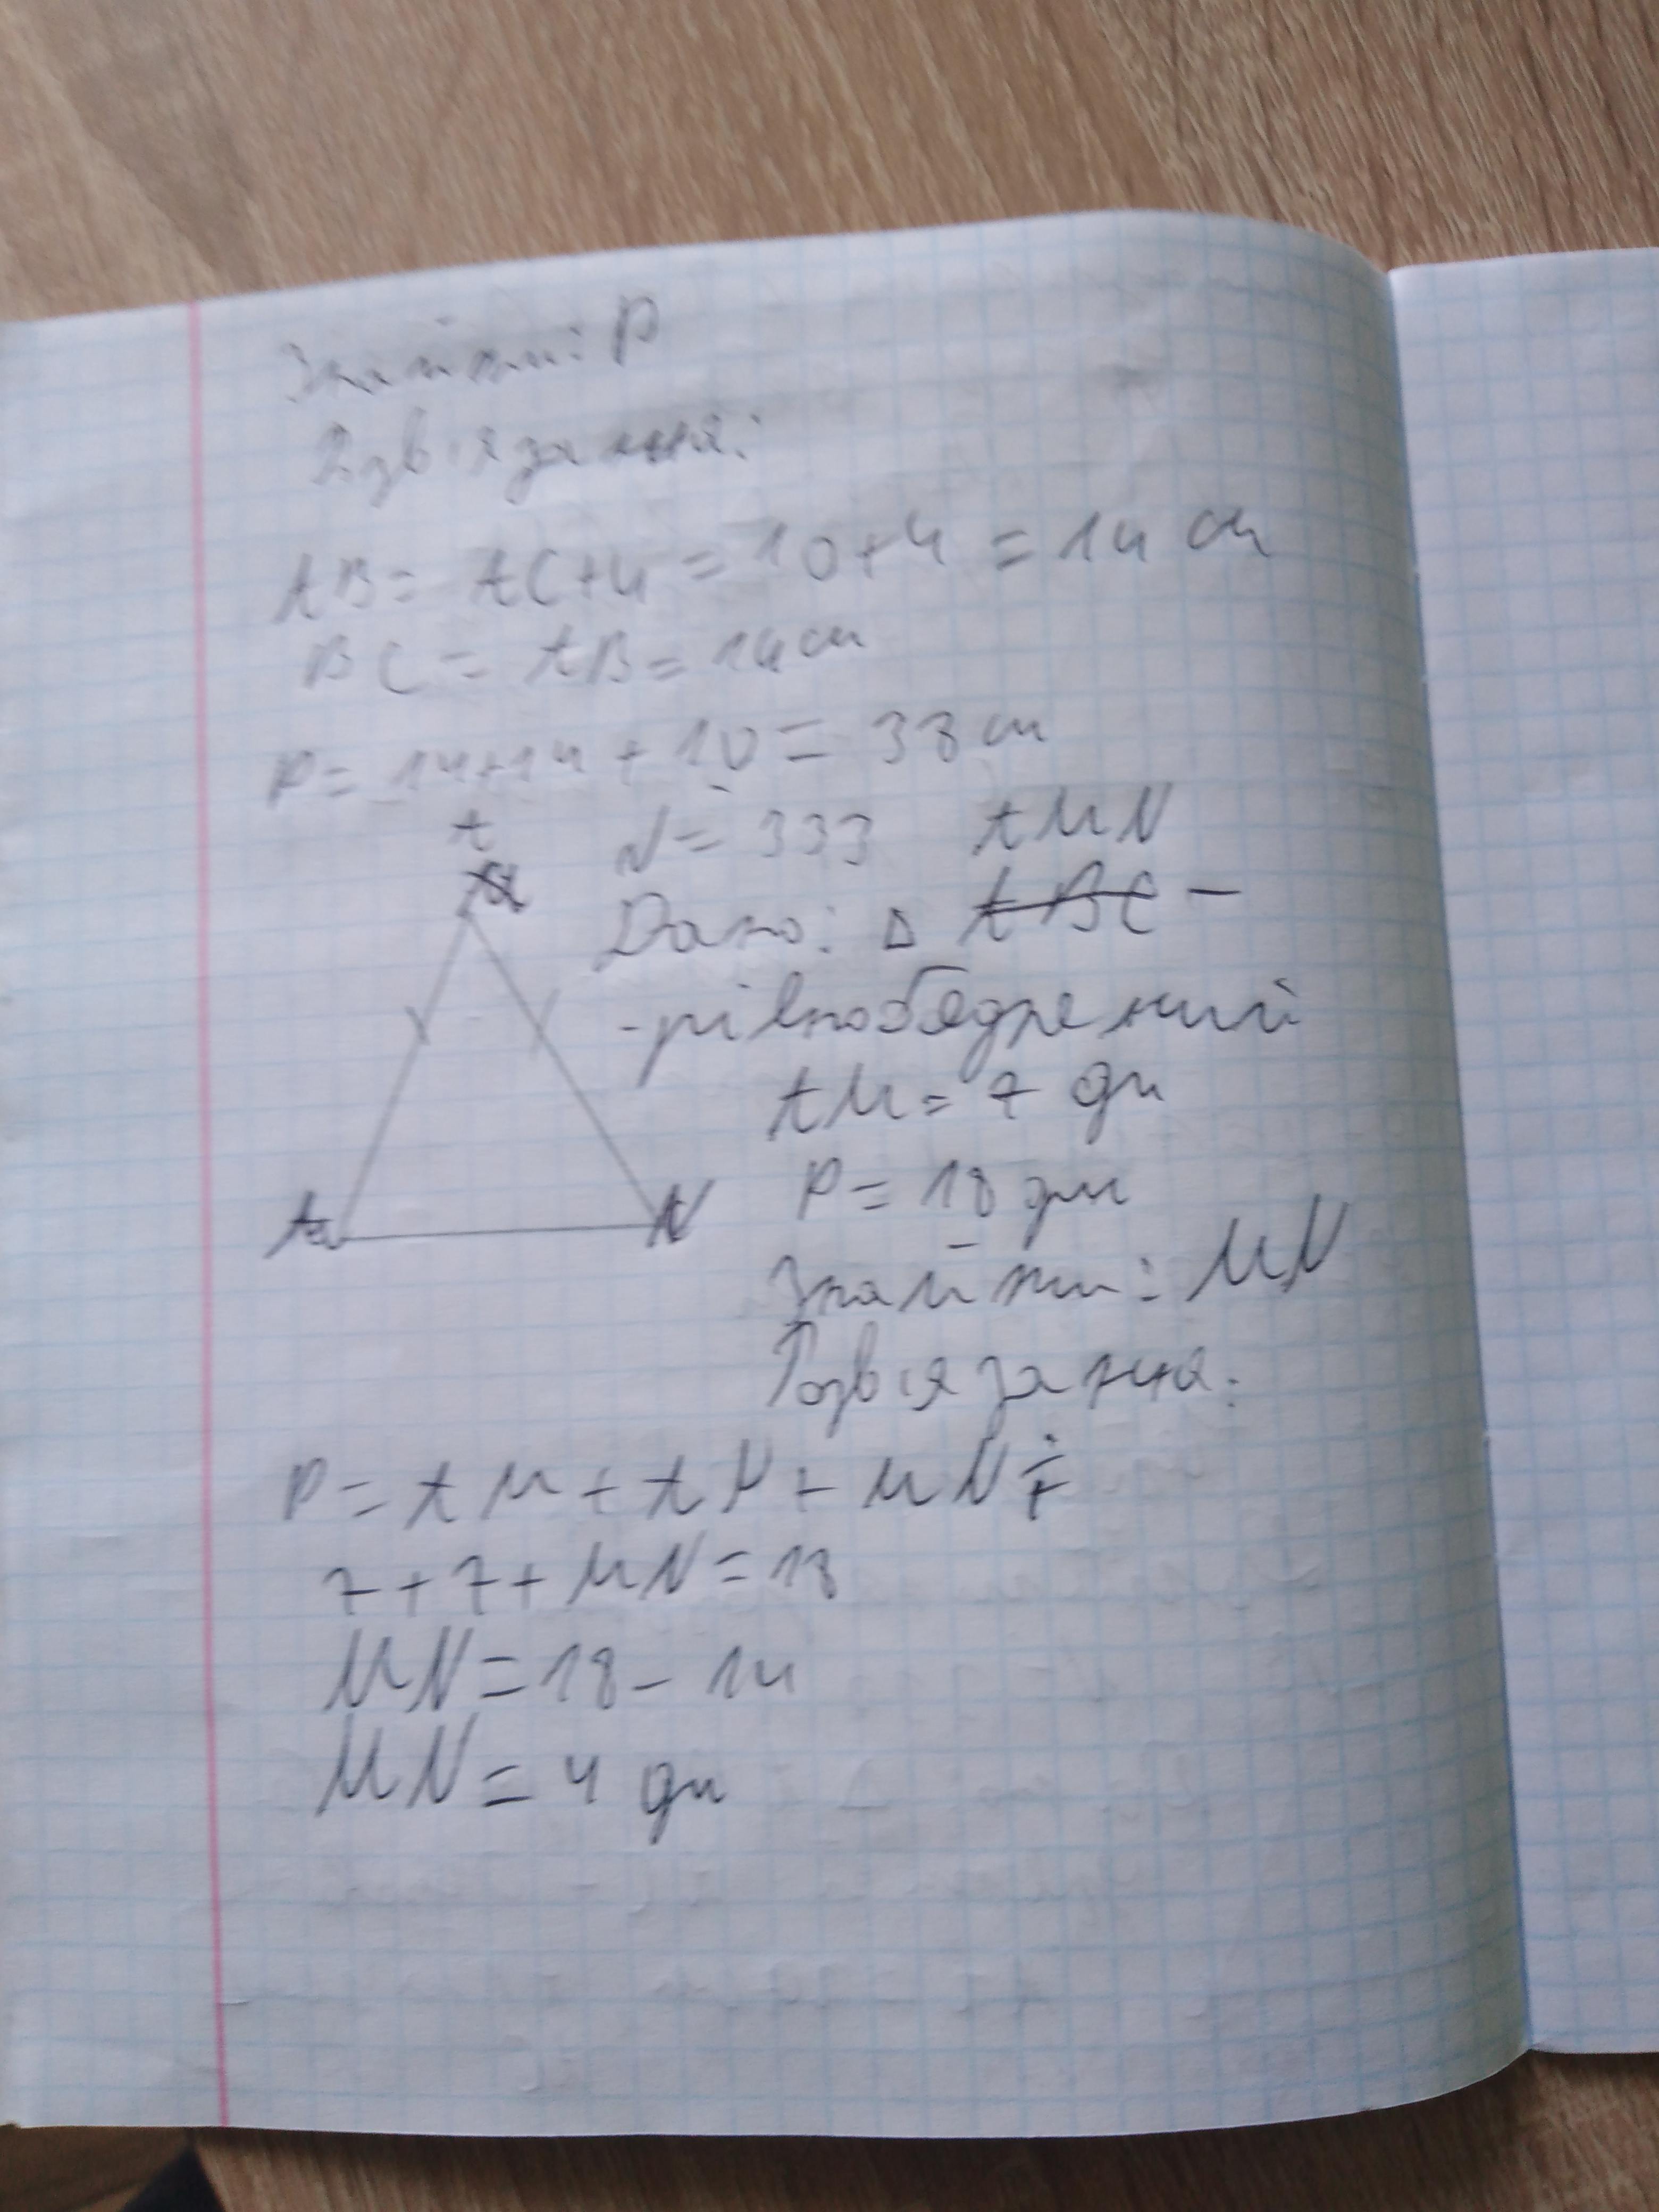 Знайти: P
Розв'язання:
AB = AC+4 = 10+4 = 14 см
BC = AB = 14 см
P = 14+14 + 10 = 38 см
A
N = 333 AMN
Дано: Δ ABC –
- рівнобедрений
AM = 7 дм
P = 18 дм
N
Знайти: MN
Розв'язання:
P = AM + AN + MN
7 + 7 + MN = 18
MN = 18 - 14
MN = 4 дм